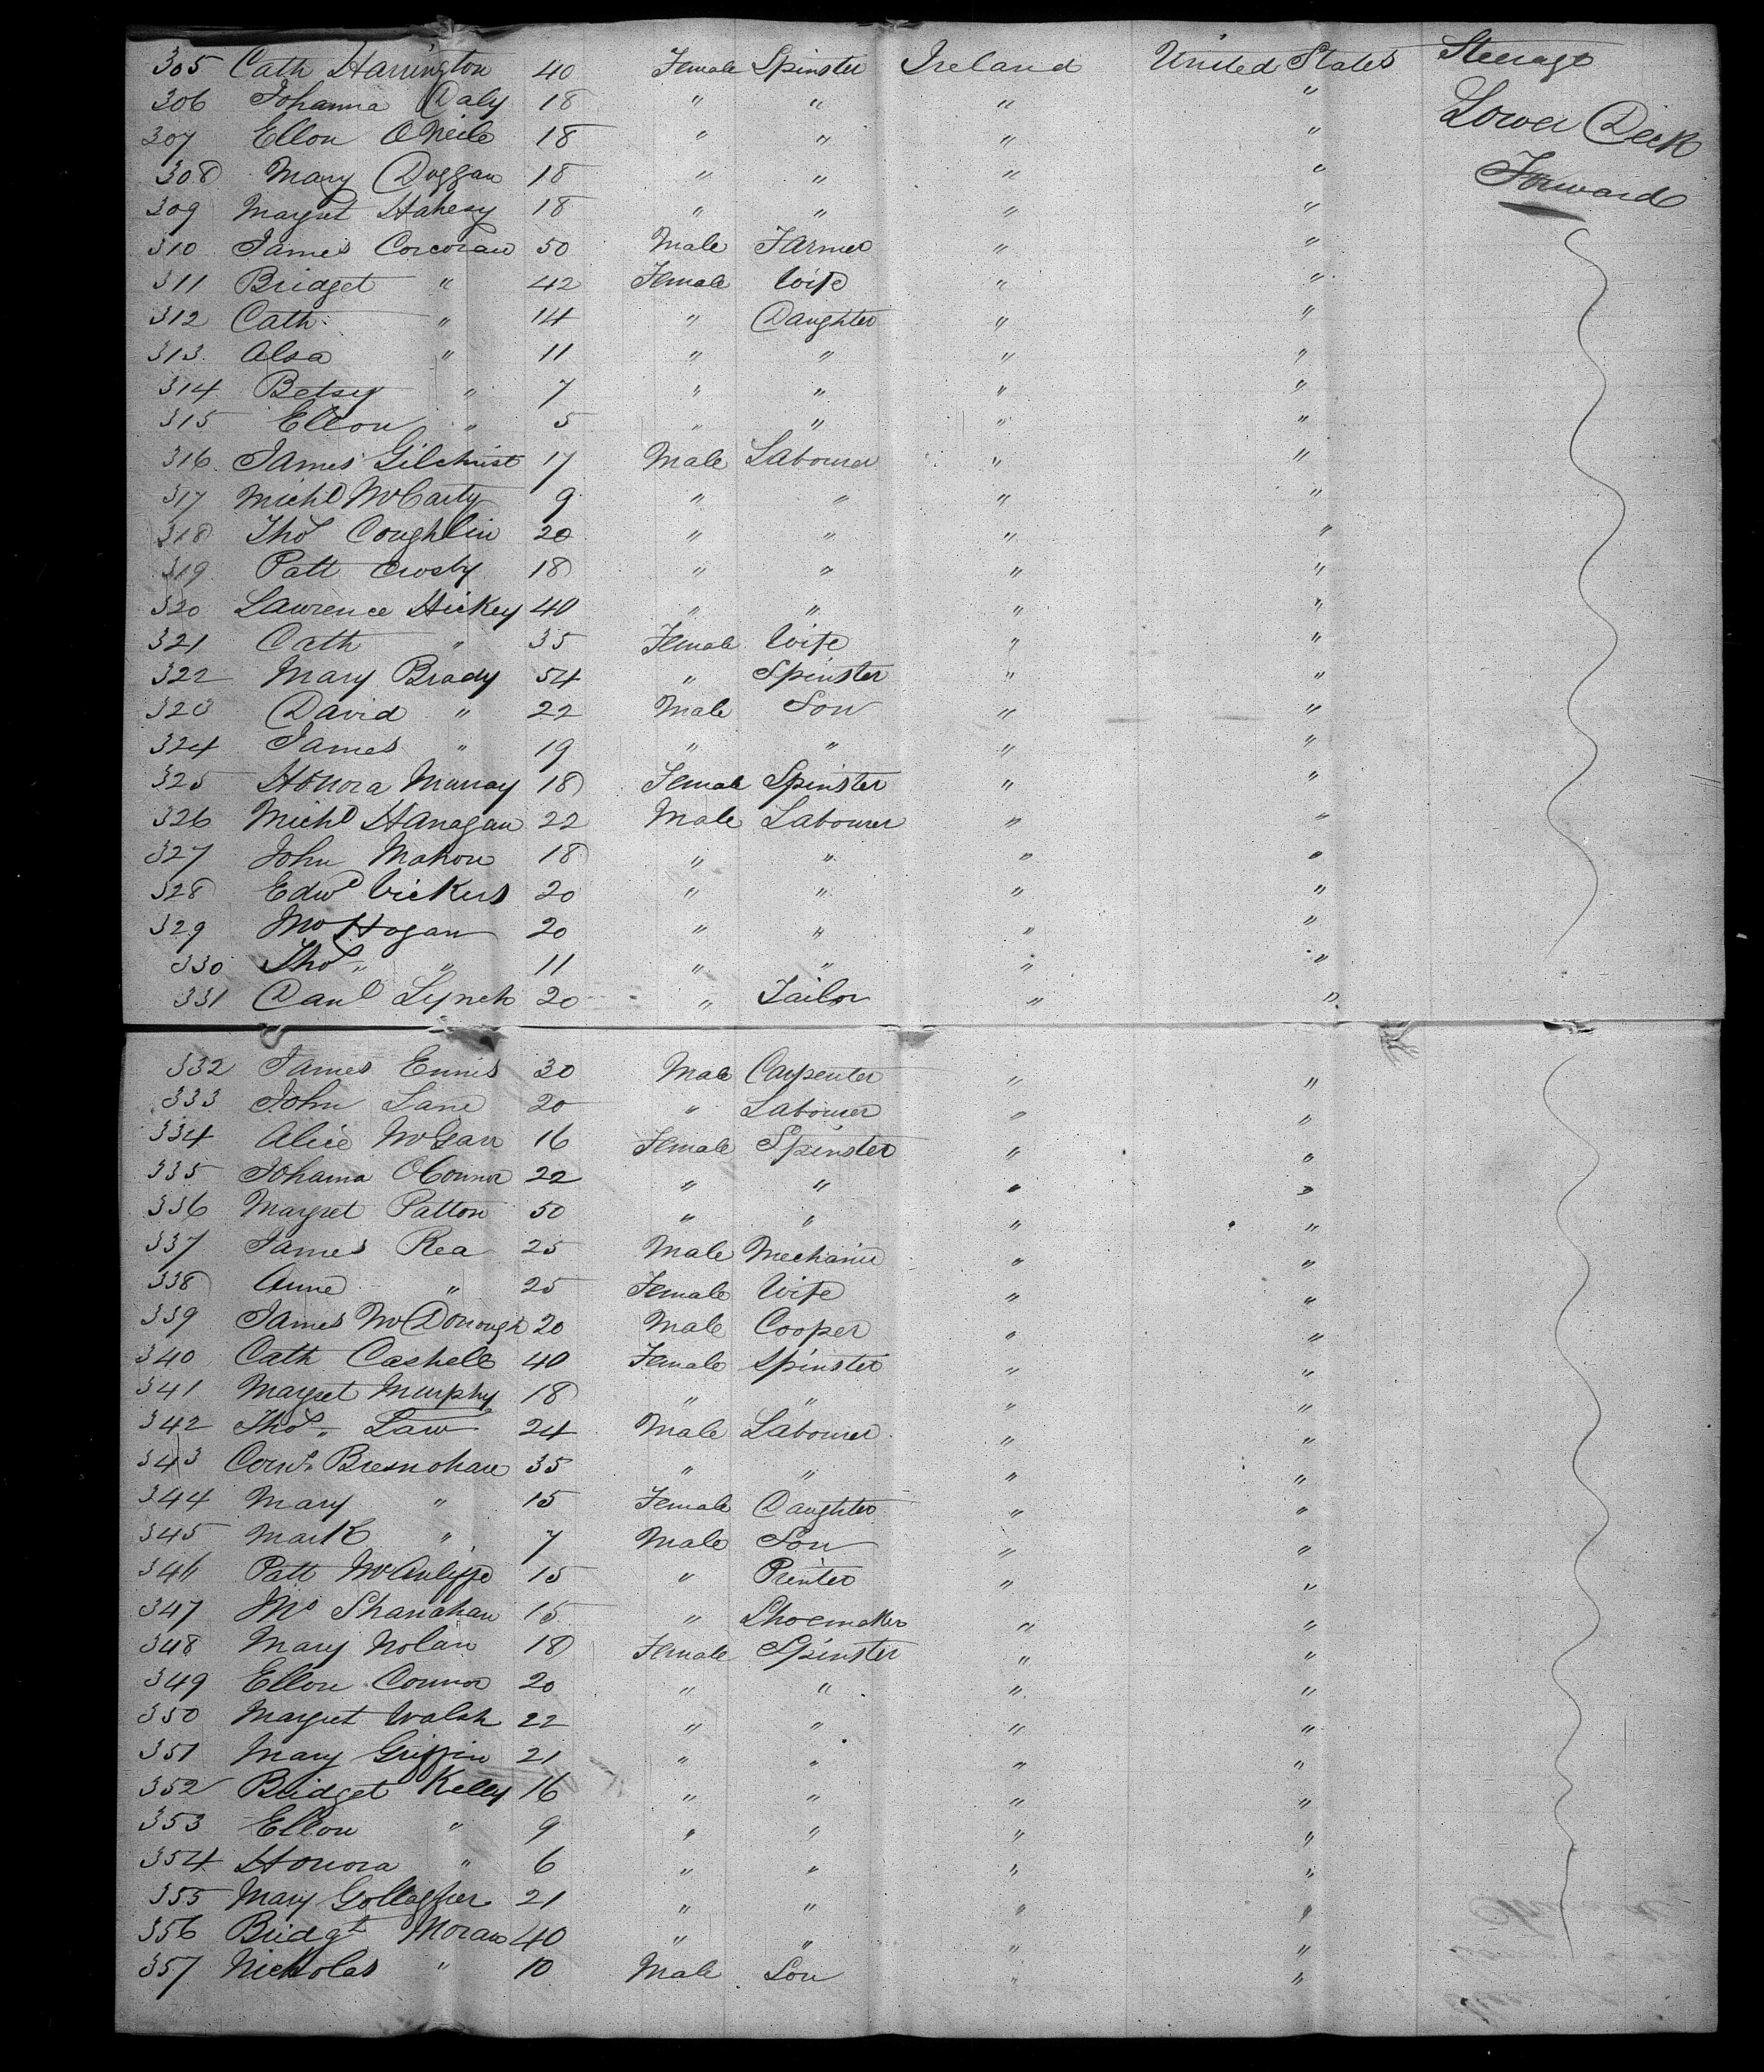 305 Cath Harrington 40 Female Spinster Ireland United States Steerage
306 Johanna Daly 18 " " " " Lower Deck
307 Ellen O'Neile 18 " " " "
308 Mary Duggan 18 " " " " Forward
309 Margret Hahesy 18 " " " "
310 James Corcoran 50 Male Farmer " "
311 Bridget " 42 Female Wife " "
312 Cath " 14 " Daughter " "
313 Alsa " 11 " " " "
314 Betsy " 7 " " " "
315 Ellen " 5 " " " "
316 James Gilchrist 17 Male Labourer " "
317 Michl McCarty 9 " " " "
318 Thos Coughlin 20 " " " "
319 Patt Crosby 18 " " " "
320 Lawrence Hickey 40 " " " "
321 Cath " 35 Female Wife " "
322 Mary Brady 54 " Spinster " "
323 David " 22 Male Son " "
324 James " 19 " " " "
325 Honora Murray 18 Female Spinster " "
326 Michl Hanagan 22 Male Labourer " "
327 John Mahon 18 " " " "
328 Edwd Vickers 20 " " " "
329 Jno Hogan 20 " " " "
330 Thos " " 11 " " " "
331 Danl Lynch 20 " Tailor " "
332 James Ennis 30 Male Carpenter " "
333 John Lane 20 " Labourer " "
334 Alice McGarr 16 Female Spinster " "
335 Johanna OConnor 22 " " " "
336 Margret Patton 50 " " " "
337 James Rea 25 Male Mechanic " "
338 Anne " 25 Female Wife " "
339 James McDonough 20 Male Cooper " "
340 Cath Cashell 40 Female Spinster " "
341 Margret Murphy 18 " " " "
342 Thos Law 24 Male Labourer " "
343 Corns Bresnohan 35 " " " "
344 Mary " 15 Female Daughter " "
345 Mark " 7 Male Son " "
346 Patt McAuliffe 15 " Printer " "
347 Jno Shanahan 15 " Shoemaker " "
348 Mary Nolan 18 Female Spinster " "
349 Ellen Connor 20 " " " "
350 Margret Walsh 22 " " " "
351 Mary Griffin 21 " " " "
352 Bridget Kelly 16 " " " "
353 Ellen " 9 " " " "
354 Honora " 6 " " " "
355 Mary Gollagher 21 " " " "
356 Bridgt Moran 40 " " " "
357 Nicholas " 10 Male Son " "